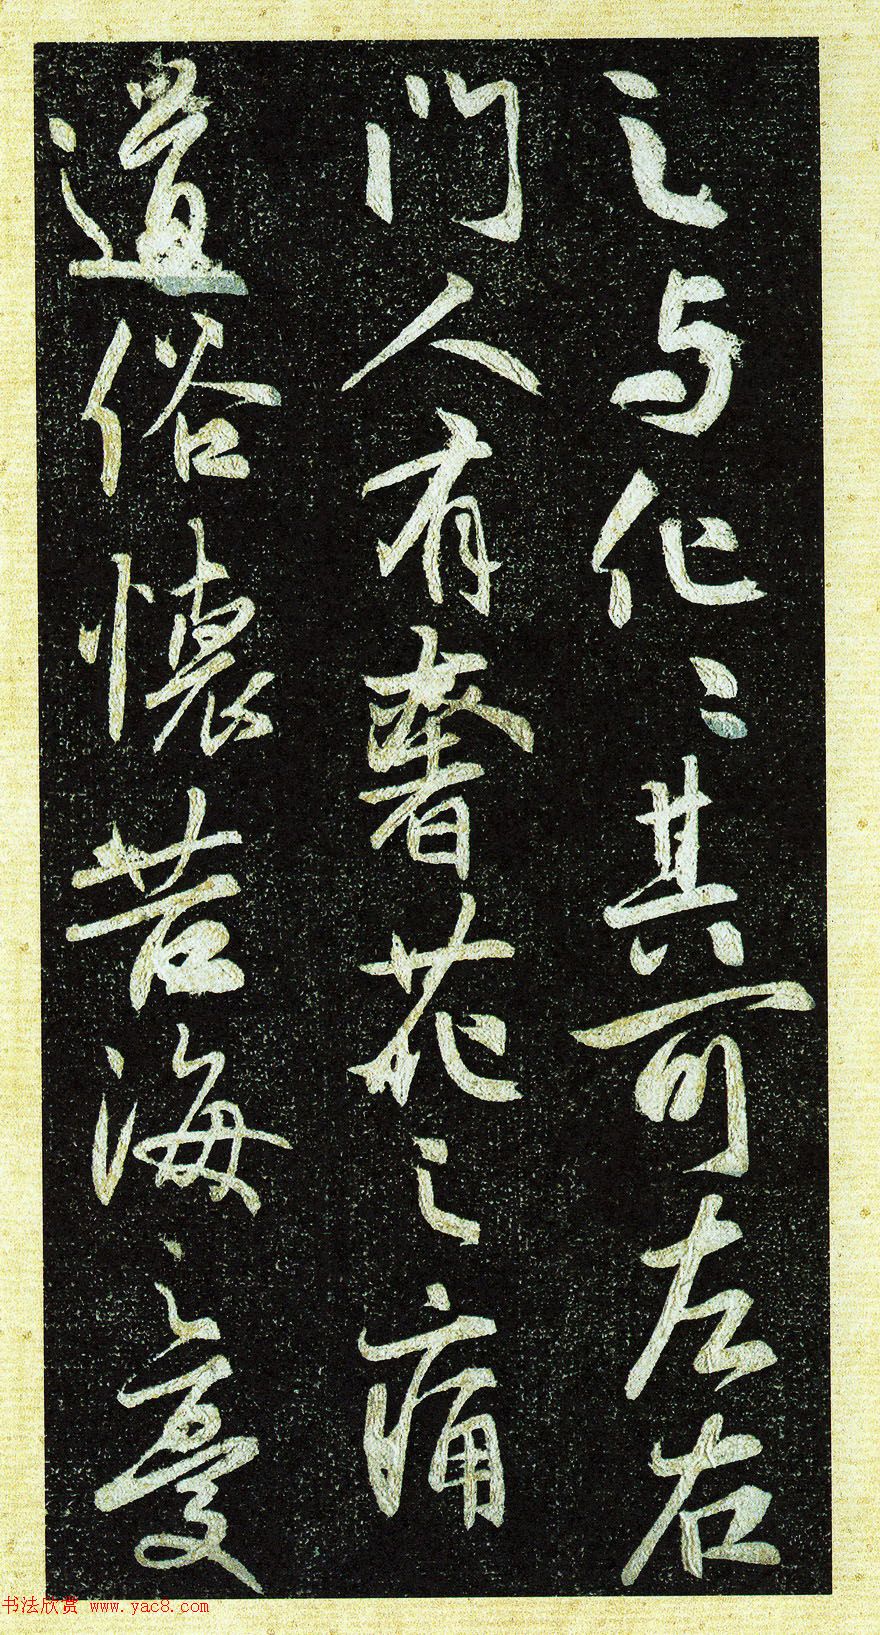 之与化〻其可左右
门人有奢花之痛
道俗懷苦海之憂
书法欣赏 www.yac8.com